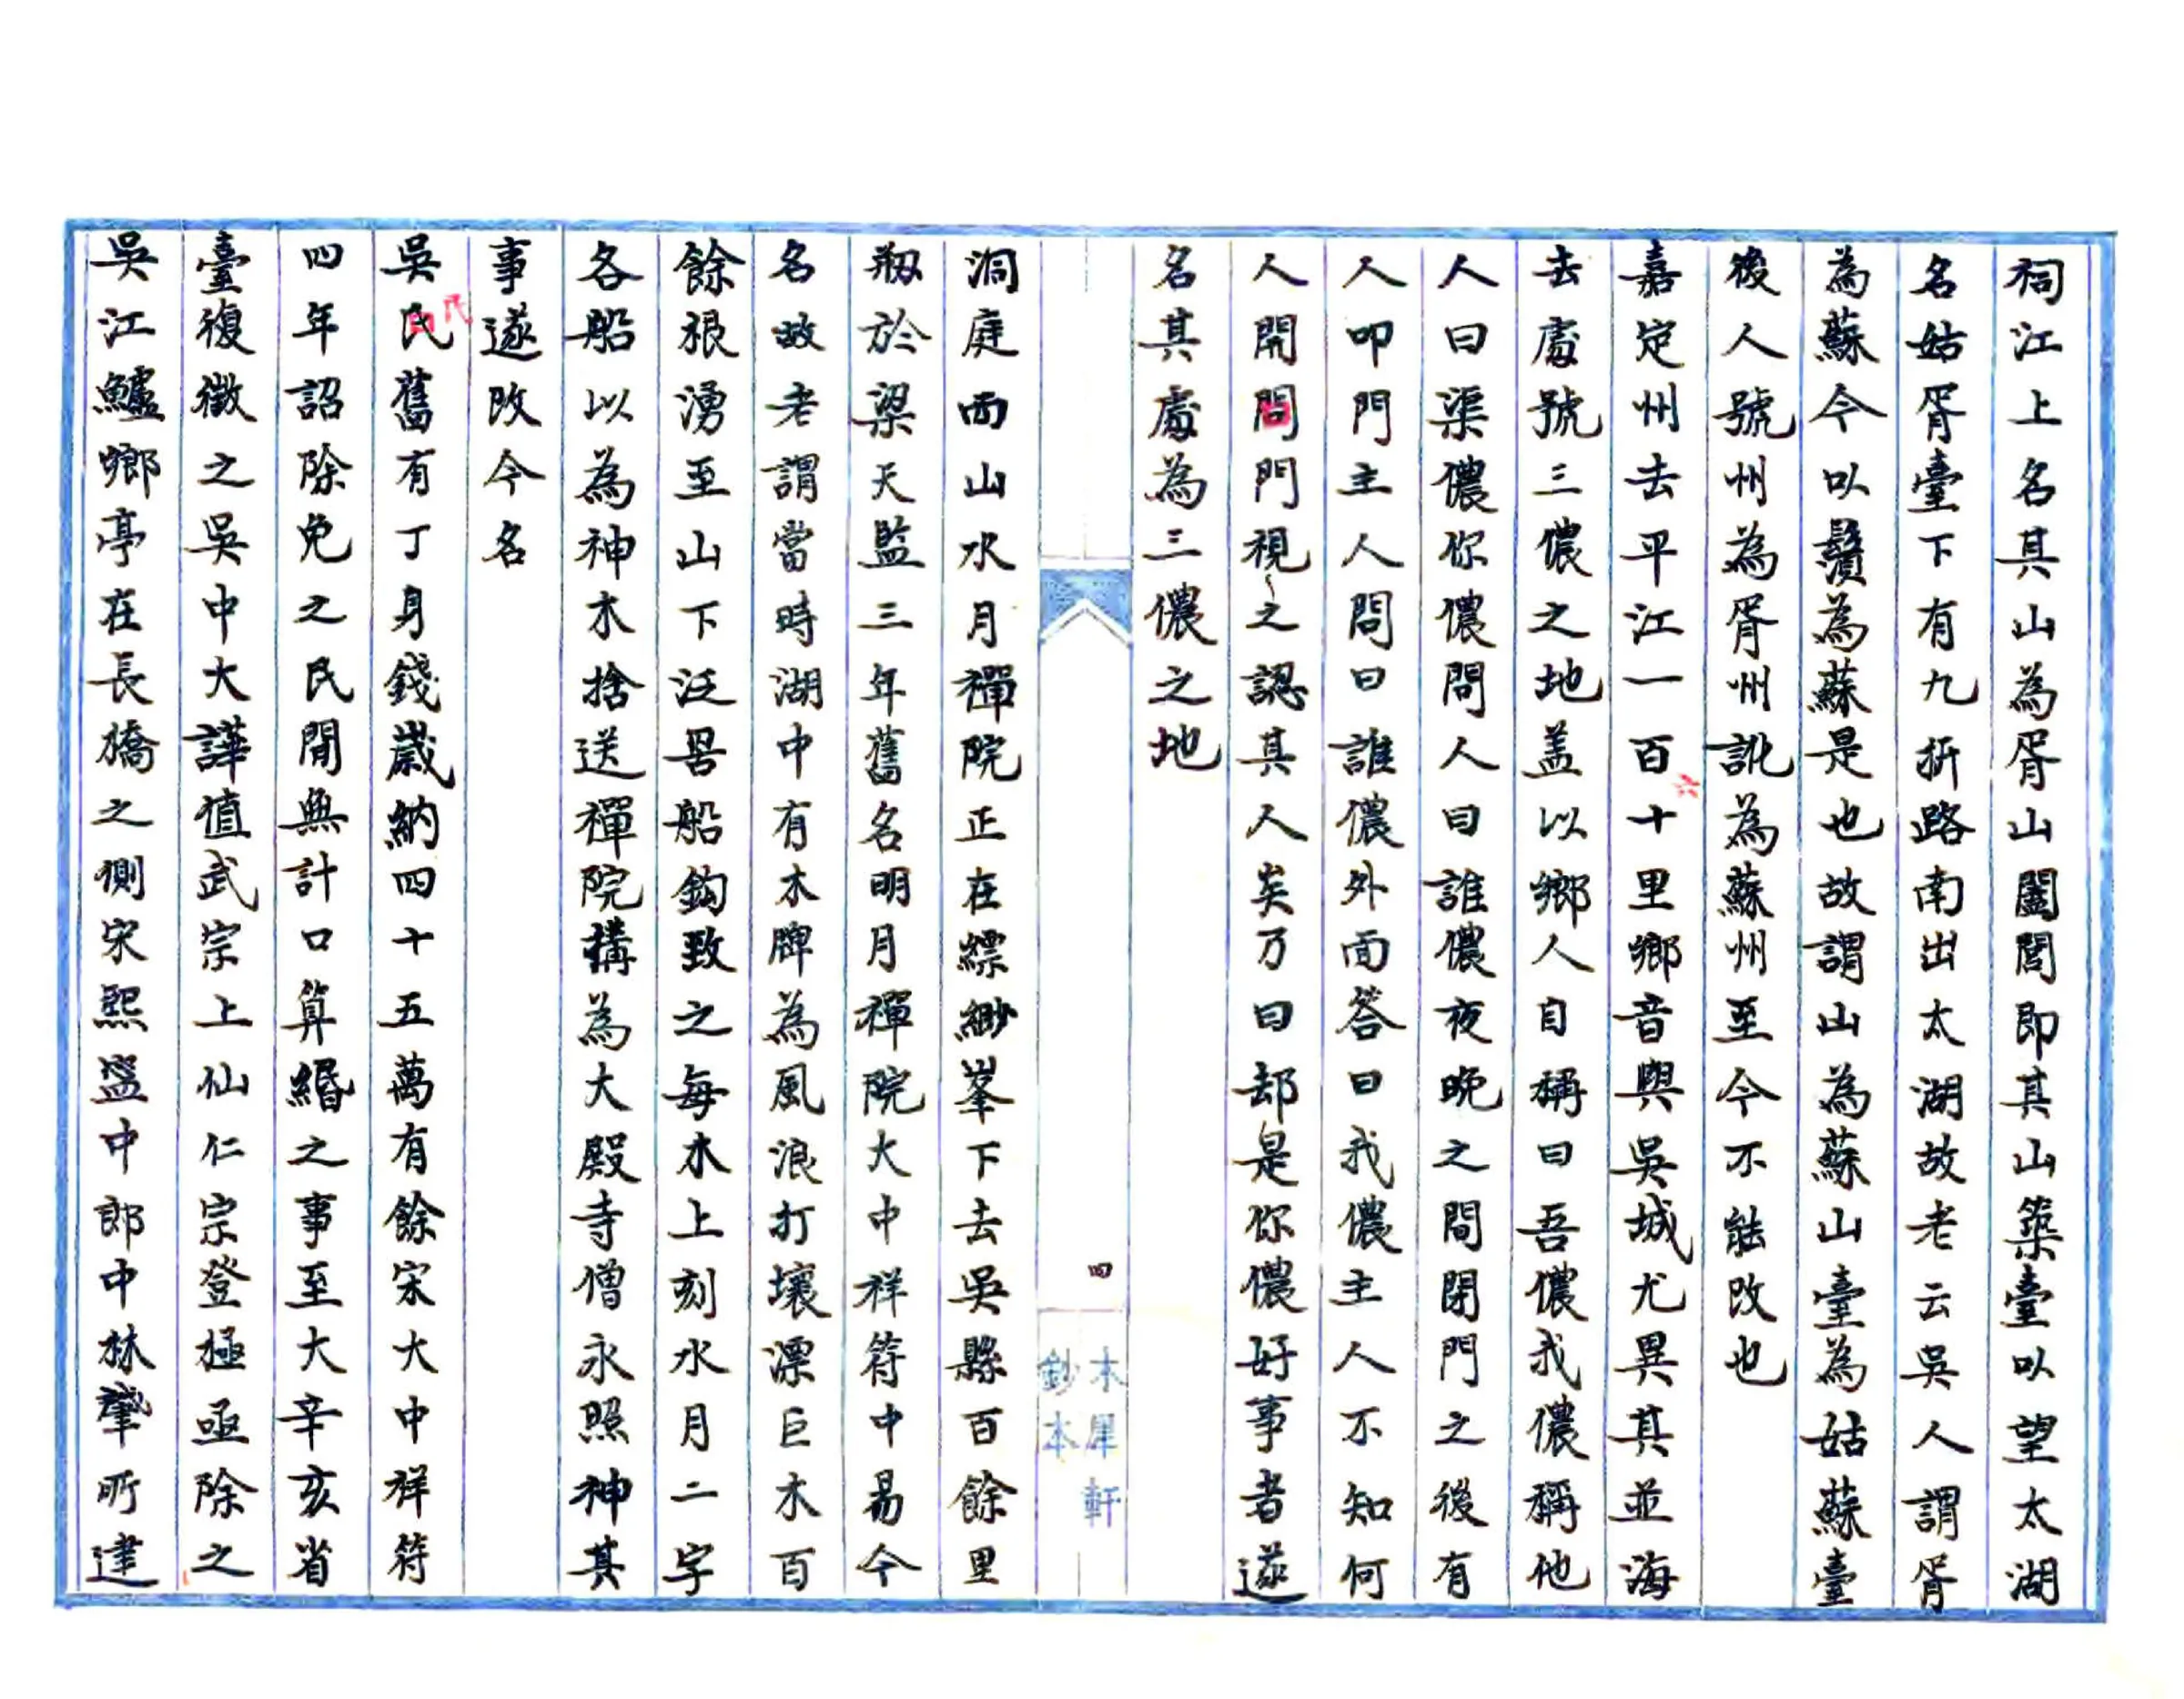 祠江上名其山為胥山闔閭即其山築臺以望太湖
名姑胥臺下有九折路南出太湖故老云吳人謂胥
為蘇今以鬚為蘇是也故謂山為蘇山臺為姑蘇臺
後人號州為胥州訛為蘇州至今不能改也
嘉定州去平江一百六十里鄉音與吳城尤異其並海
去處號三儂之地盖以鄉人自稱曰吾儂我儂稱他
人曰渠儂你儂問人曰誰儂夜晚之間閉門之後有
人叩門主人問曰誰儂外面答曰我儂主人不知何
人開門視之認其人矣乃曰却是你儂好事者遂
名其處為三儂之地
四
木犀軒
鈔本
洞庭西山水月禪院正在縹緲峯下去吳縣百餘里
剙於梁天監三年舊名明月禪院大中祥符中易今
名故老謂當時湖中有木牌為風浪打壞漂巨木百
餘根湧至山下泛罟船鈎致之每木上刻水月二字
各船以為神木捨送禪院構為大殿寺僧永照神其
事遂改今名
吳民舊有丁身錢歲納四十五萬有餘宋大中祥符
四年詔除免之民間無計口算緡之事至大辛亥省
臺復徵之吳中大譁值武宗上仙仁宗登極亟除之
吳江鱸鄉亭在長橋之側宋熙寧中郎中林肇所建